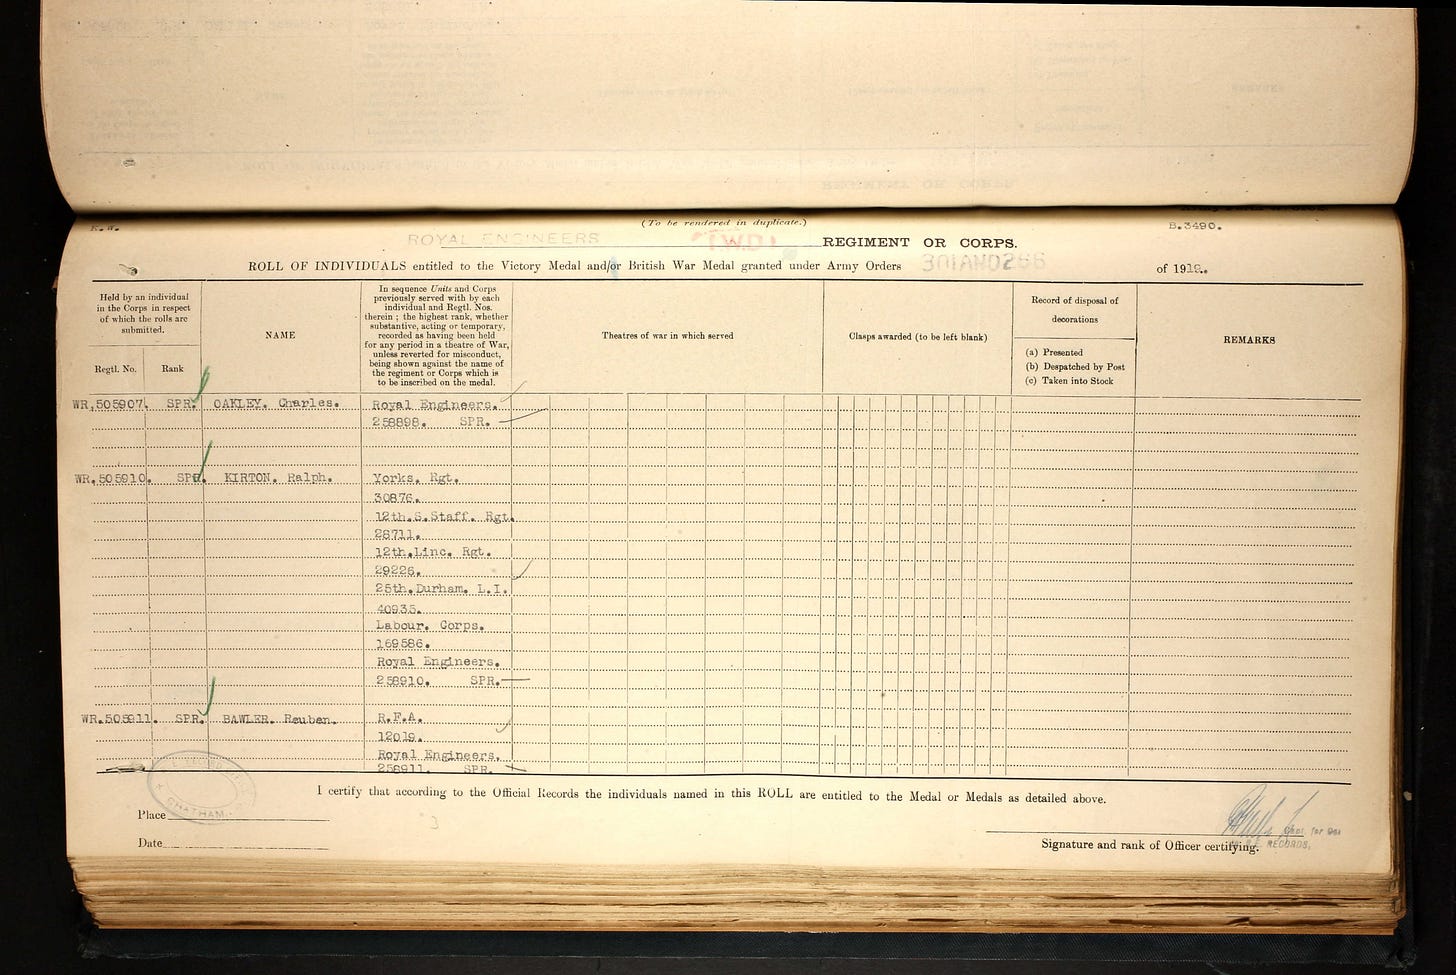 K.W.
(To be rendered in duplicate.)
B.3490.
ROYAL ENGINEERS (W.D) REGIMENT OR CORPS.
ROLL OF INDIVIDUALS entitled to the Victory Medal and/or British War Medal granted under Army Orders 301AND266 of 1919.
Held by an individual
in the Corps in respect
of which the rolls are
submitted.
Regtl. No.
Rank
NAME
In sequence Units and Corps
previously served with by each
individual and Regtl. Nos.
therein ; the highest rank, whether
substantive, acting or temporary,
recorded as having been held
for any period in a theatre of War,
unless reverted for misconduct,
being shown against the name of
the regiment or Corps which is
to be inscribed on the medal.
Theatres of war in which served
Clasps awarded (to be left blank)
Record of disposal of
decorations
(a) Presented
(b) Despatched by Post
(c) Taken into Stock
REMARKS
WR.505907. SPR. OAKLEY. Charles. Royal Engineers.
258898. SPR.
WR.505910. SPR. KIRTON. Ralph. Yorks. Rgt.
30876.
12th.S.Staff. Rgt.
28711.
12th.Linc. Rgt.
29226.
25th.Durham. L.I.
40935.
Labour. Corps.
169586.
Royal Engineers.
258910. SPR.
WR.505911. SPR. BAWLER. Reuben. R.F.A.
12019.
Royal Engineers.
258911. SPR.
I certify that according to the Official Records the individuals named in this ROLL are entitled to the Medal or Medals as detailed above.
CHATHAM
Place
3
Date
for
R.E. RECORDS.
Signature and rank of Officer certifying.